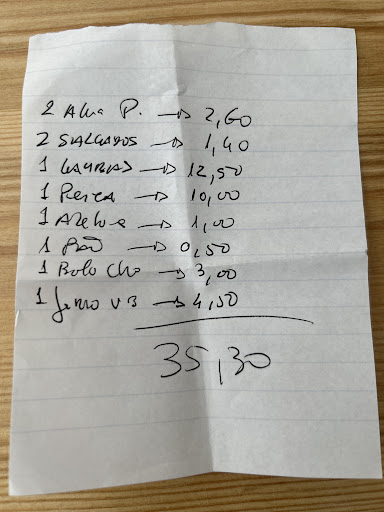 2 Água P. → 2,60
2 SALGADOS → 1,40
1 → 12,50
1 → 10,00
1 → 1,00
1 Pão → 0,50
1 Bolo Cho → 3,00
1 Jarro V B → 4,50
35,30